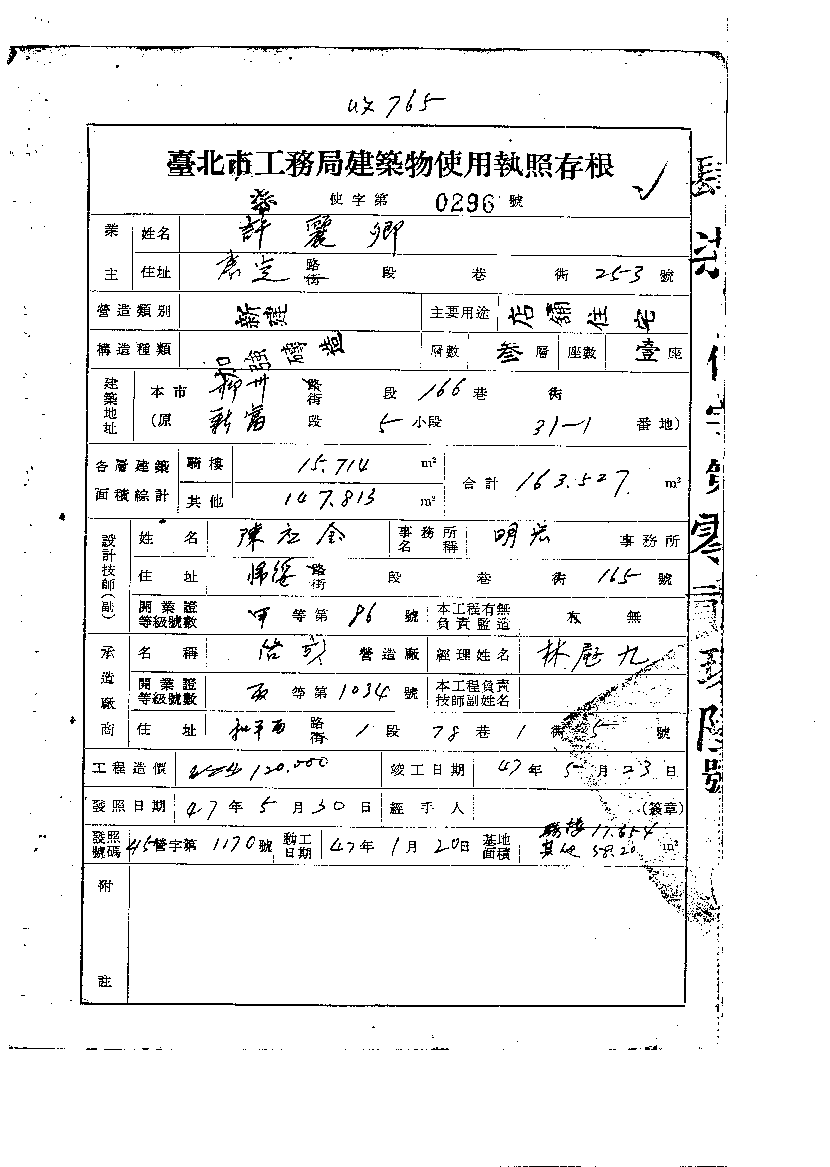 765
臺北市工務局建築物使用執照存根
使字第 0296 號
業主 姓名 許麗卿
住址 路街 段 巷 街 253 號
營造類別 新建 主要用途 店舖住宅
構造種類 加強磚造 層數 叁層 座數 壹座
建築地址 本市 柳州 路街 段 166 巷 街
(原 新富 段 5 小段 31-1 番地)
各層建築面積綜計 騎樓 15.714 m² 合計 163.527 m²
其他 147.813 m²
設計技師(副) 姓名 陳 金 事務所名稱 明 事務所
住址 歸綏 路街 段 巷 街 165 號
開業證等級號數 甲 等第 86 號 本工程有無負責監造 有 無
承造廠商 名稱 營造廠 經理姓名 林 九
開業證等級號數 丙 等第 1034 號 本工程負責技師副姓名
住址 和平西 路街 1 段 78 巷 1 街 5 號
工程造價 120.000 竣工日期 47 年 5 月 23 日
發照日期 47 年 5 月 30 日 經手人 (簽章)
發照號碼 45 營字第 1170 號 動工日期 47 年 1 月 20 日 基地面積 騎樓 17.654 其他 58.20 m²
附註